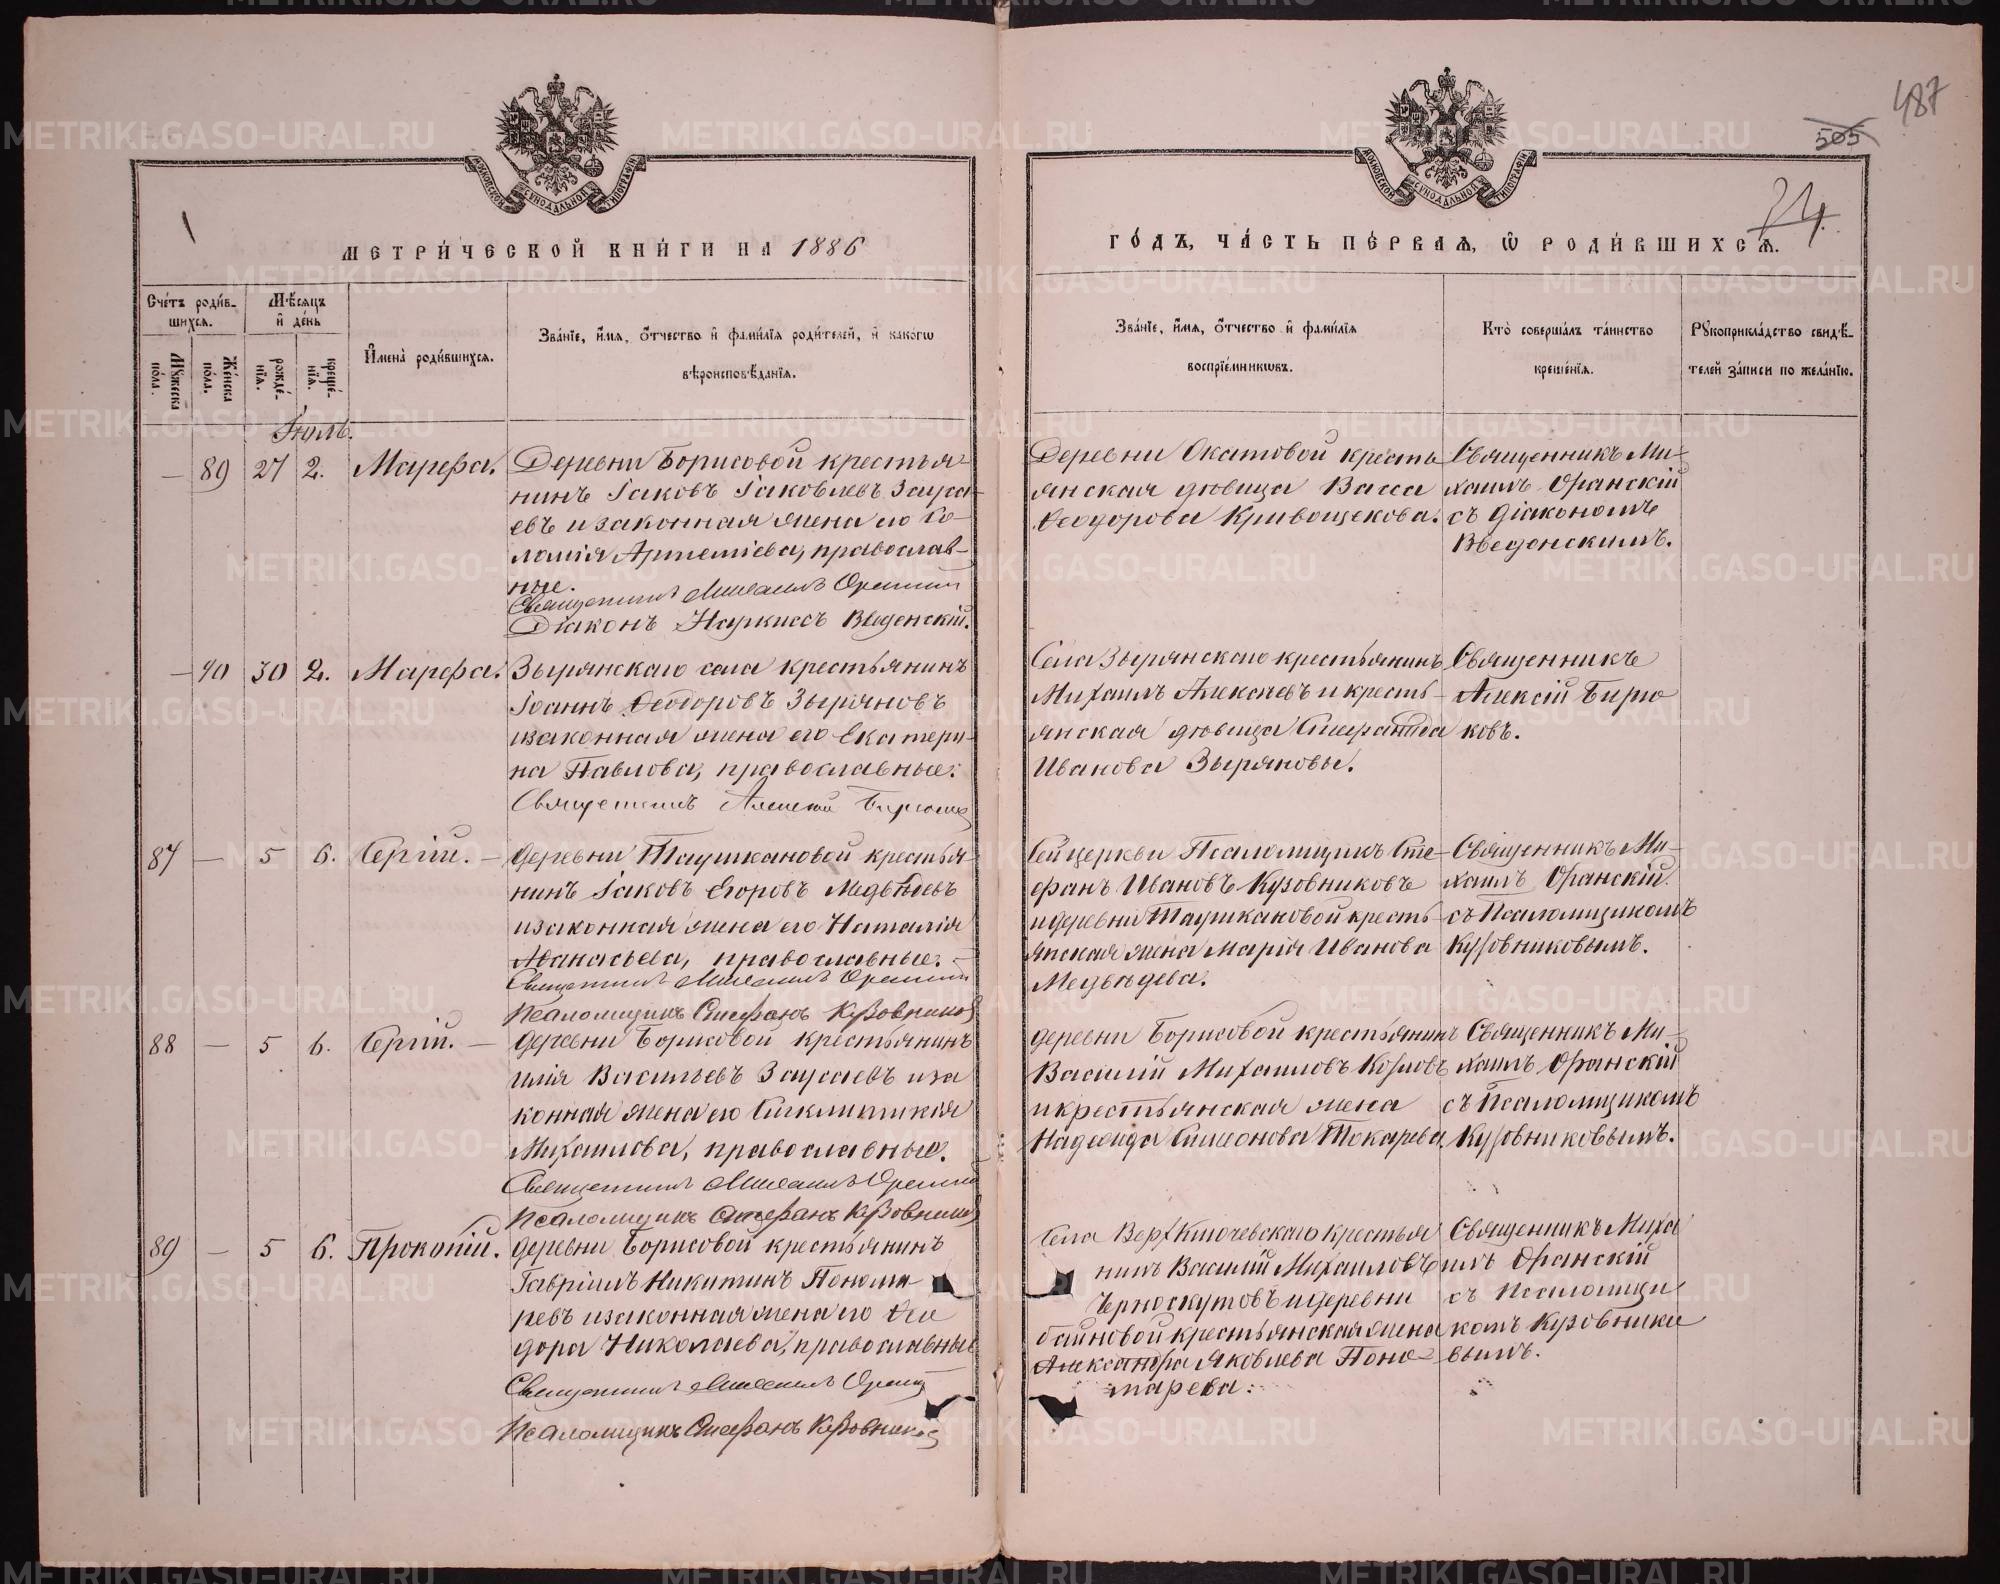 487
505
24.
МОСКОВСКОЙ СѴНОДАЛЬНОЙ ТИПОГРАФІИ
МОСКОВСКОЙ СѴНОДАЛЬНОЙ ТИПОГРАФІИ
МЕТРИ́ЧЕСКОЙ КНИ́ГИ НА 1886
ГО́ДЪ, ЧА́СТЬ ПЕ́РВАѦ, Ѡ РОДИ́ВШИХСѦ.
Сче́тъ роди́в-
шихсѧ.
Мѣ́сѧцъ
и҆ де́нь
Мꙋ́жеска
по́ла.
Же́нска
по́ла.
рожде́-
нїѧ.
креще́-
нїѧ.
И҆мена̀ роди́вшихсѧ.
Зва́нїе, и҆́мѧ, о҆́тчество и҆ фами́лїѧ роди́телей, и҆ како́гѡ
вѣроисповѣ́данїѧ.
Зва́нїе, и҆́мѧ, о҆́тчество и҆ фами́лїѧ
воспрїе́мникѡвъ.
Кто̀ соверша́лъ та́инство
креще́нїѧ.
Рꙋкоприкла́дство свидѣ́-
телей за́писи по жела́нїю.
Іюль.
— 89 27 2. Марѳа. Деревни Борисовой крестья-
нинъ Іаковъ Іаковлевъ Зауса-
евъ и законная жена его Со-
ломія Артеміева, православ-
ные.
Священникъ Михаилъ Оранскій
Діаконъ Наркиссъ Введенскій.
Деревни Окатовой кресть-
янская дѣвица Васса
Ѳеодорова Кривощекова.
Священникъ Ми-
хаилъ Оранскій
съ діакономъ
Введенскимъ.
— 90 30 2. Марѳа. Зырянскаго села крестьянинъ
Іоаннъ Ѳеодоровъ Зыряновъ
и законная жена его Екатери-
на Павлова, православные.
Священникъ Алексій Бирюков
Села Зырянскаго крестьянинъ
Михаилъ Алексѣевъ и кресть-
янская дѣвица
Иванова Зыряновы.
Священникъ
Алексій Бирю
ковъ.
87 — 5 6. Сергій. — Деревни Таушкановой крестья-
нинъ Іаковъ Егоровъ Медвѣдевъ
и законная жена его Наталія
Аѳанасьева, православные. —
Священникъ Михаилъ Оранскій
Псаломщикъ Стефанъ Кузовников
Сей церкви Псаломщикъ Сте-
фанъ Ивановъ Кузовниковъ
и деревни Таушкановой кресть-
янская жена Марія Иванова
Медвѣдева.
Священникъ Ми-
хаилъ Оранскій
съ Псаломщикомъ
Кузовниковымъ.
88 — 5 6. Сергій. — Деревни Борисовой крестьянинъ
Илія Васильевъ Заусаевъ и за
конная жена его Синклитикія
Михаилова, православные.
Священникъ Михаилъ Оранскій
Псаломщикъ Стефанъ Кузовников
Деревни Борисовой крестьянинъ
Василій Михаиловъ Козловъ
и крестьянская жена
Надежда Симеонова Токарева
Священникъ Ми-
хаилъ Оранскій
съ Псаломщикомъ
Кузовниковымъ.
89 — 5 6. Прокопій. Деревни Борисовой крестьянинъ
Гавріилъ Никитинъ Понома-
ревъ и законная жена его Ѳео
дора Николаева, православные
Священникъ Михаилъ Оранск
Псаломщикъ Стефанъ Кузовников
Села Верхключевскаго крестья
нинъ Василій Михаиловъ
Черноскутовъ и деревни
байновой крестьянская жена
Александра Яковлева Поно-
марева.
Священникъ Миха
илъ Оранскій
съ Псаломщи
комъ Кузовнико
вымъ.
METRIKI.GASO-URAL.RU